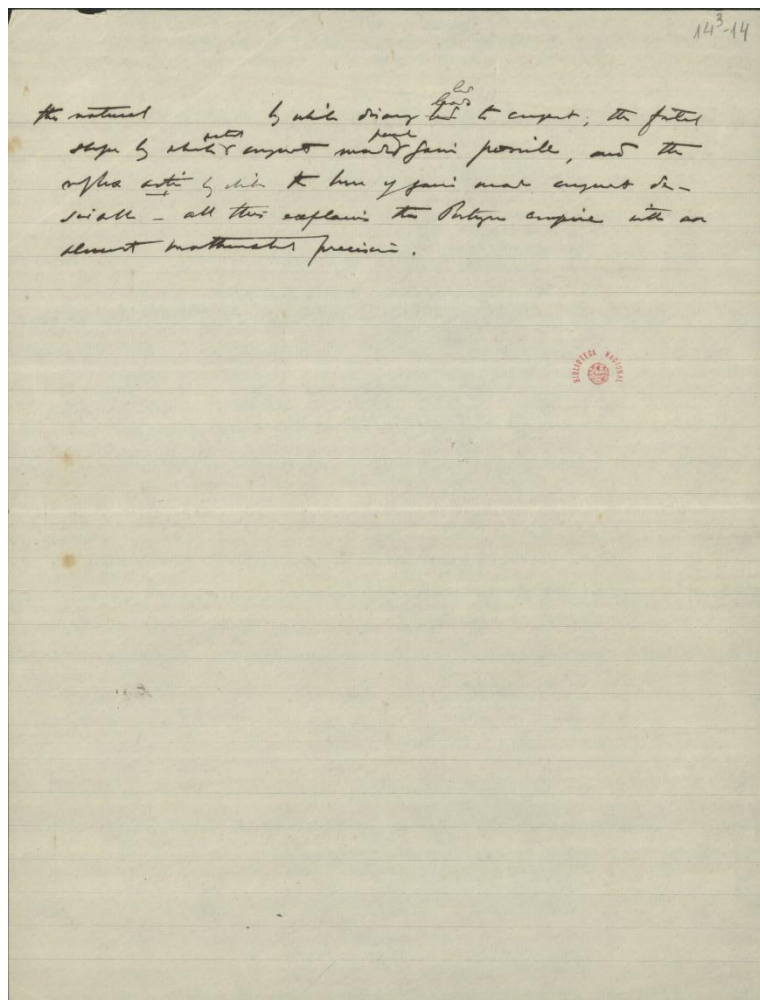 14³-14
the natural by which discovery led to conquest; the fatal
steps by which conquest made gain possible, and the
reflex action by which the love of gain made conquest de-
sirable – all this explains the Portuguese empire with an
almost mathematical precision.
BIBLIOTECA NACIONAL